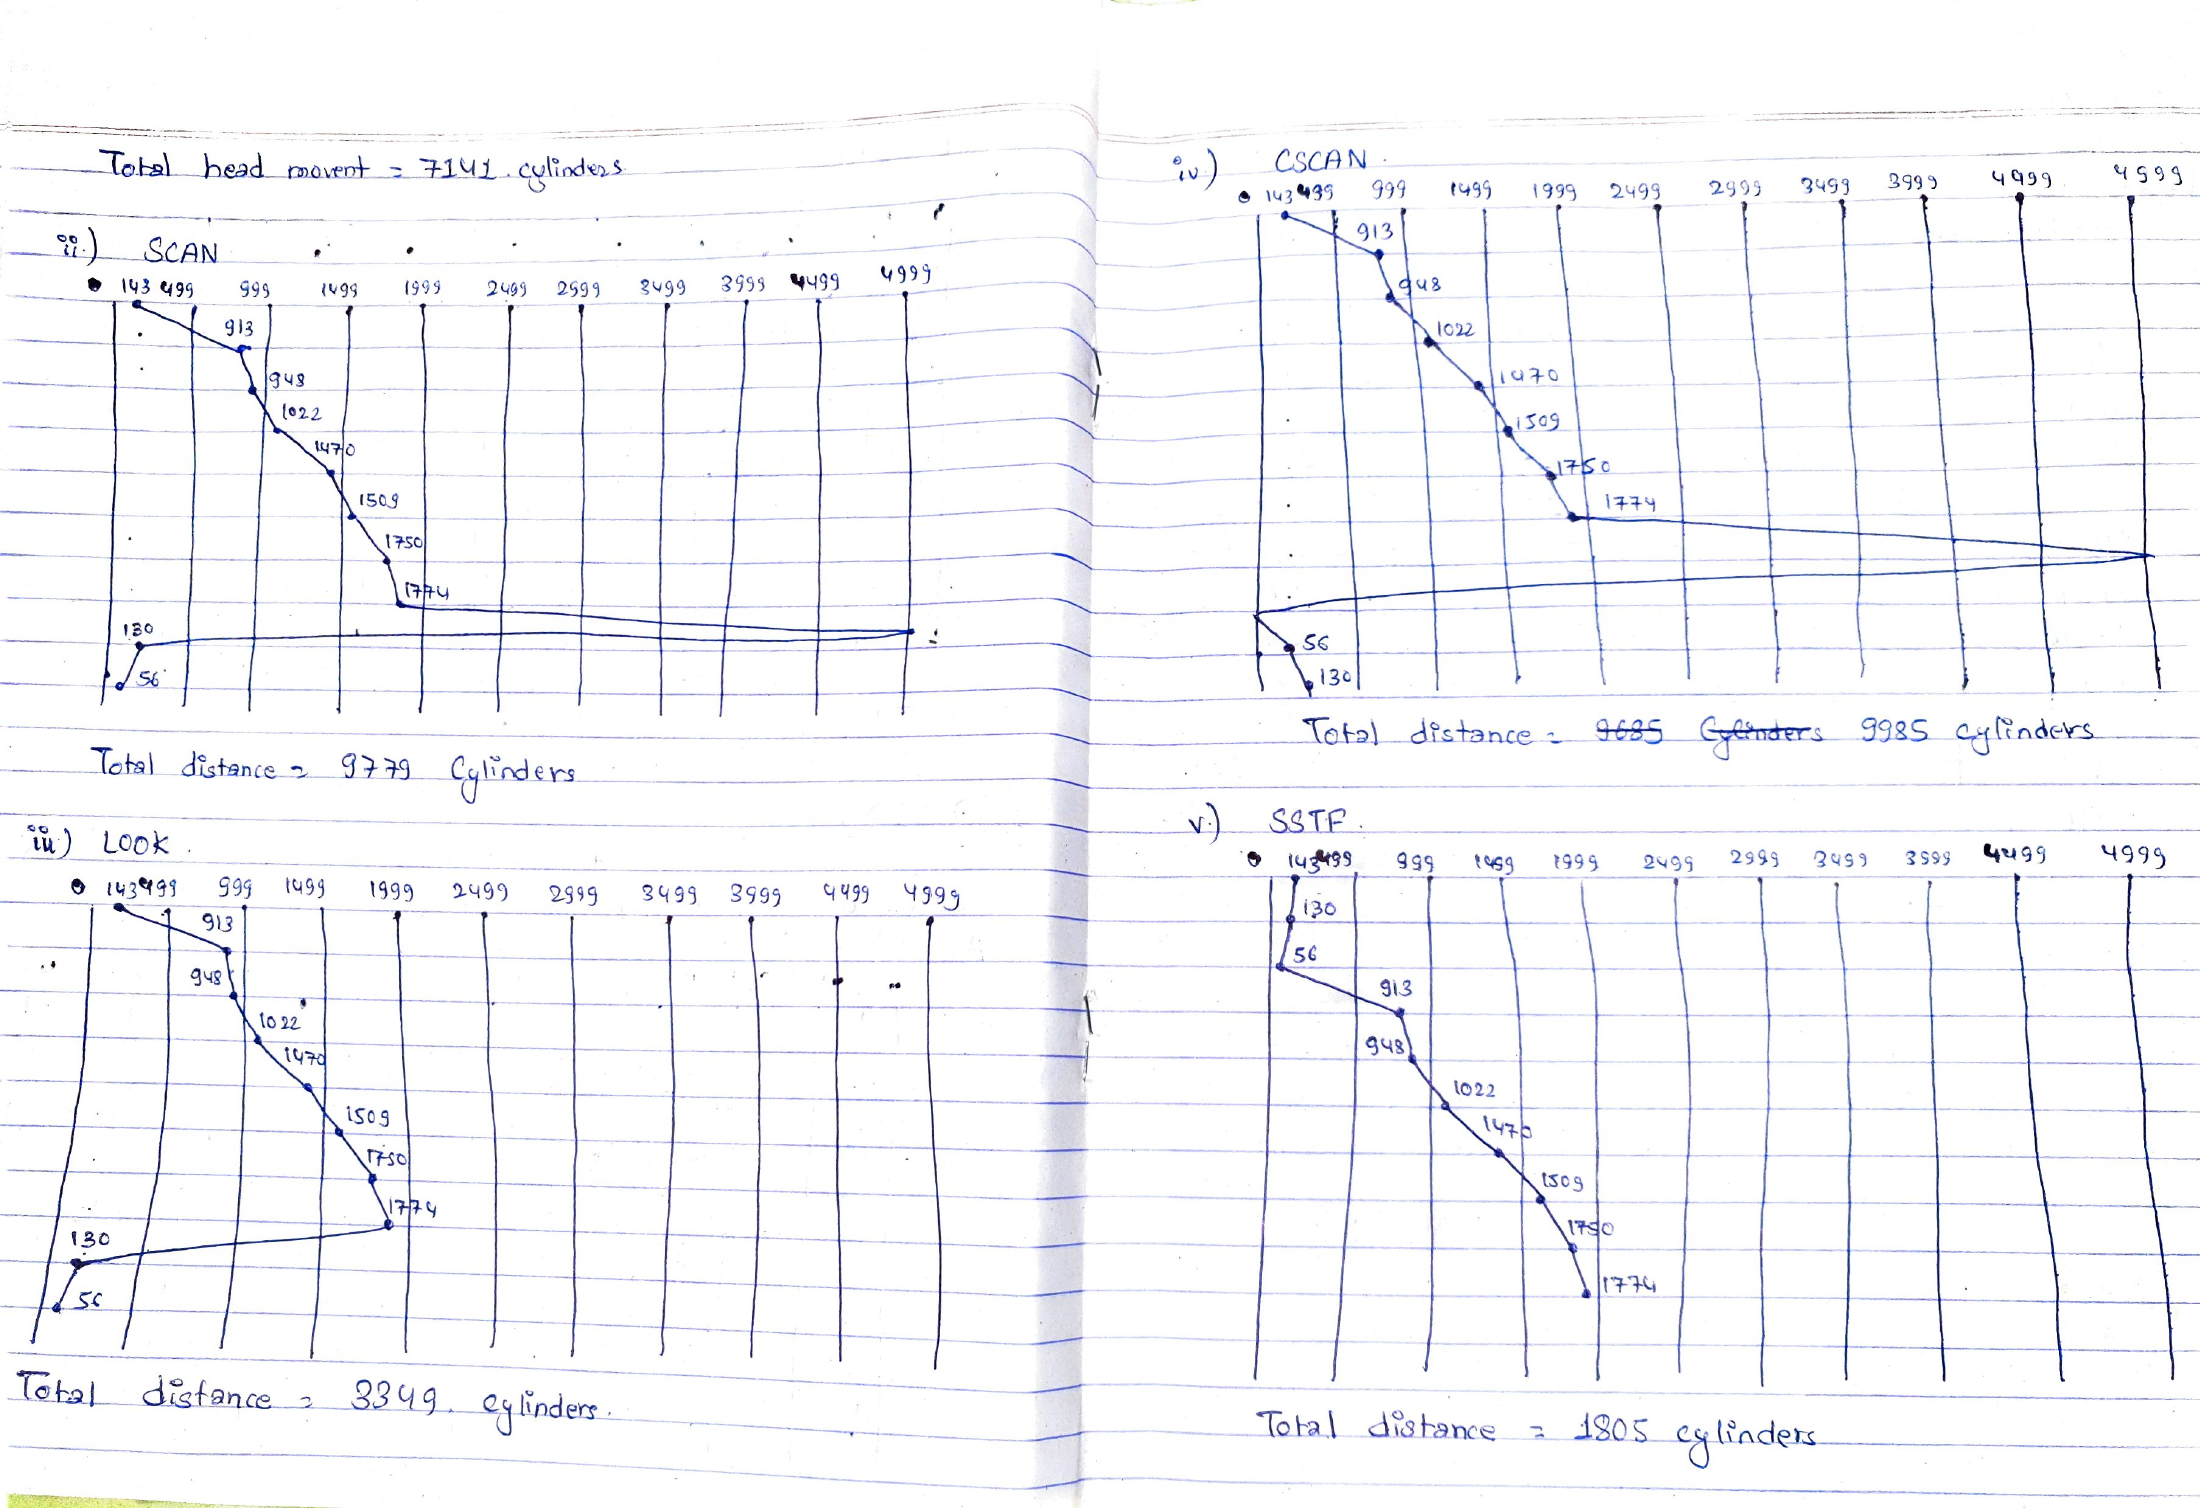 Total head movent = 7141 cylinders
ii) SCAN
0 143 499 999 1499 1999 2499 2999 3499 3999 4499 4999
913
948
1022
1470
1509
1750
1774
130
56
Total distance = 9779 Cylinders
iii) LOOK
0 143 499 999 1499 1999 2499 2999 3499 3999 4499 4999
913
948
1022
1470
1509
1750
1774
130
56
Total distance = 3349 cylinders.
iv) CSCAN
0 143 499 999 1499 1999 2499 2999 3499 3999 4499 4999
913
948
1022
1470
1509
1750
1774
56
130
Total distance = 9685 Cylinders 9985 cylinders
v) SSTF
0 143 499 999 1499 1999 2499 2999 3499 3999 4499 4999
130
56
913
948
1022
1470
1509
1750
1774
Total distance = 1805 cylinders